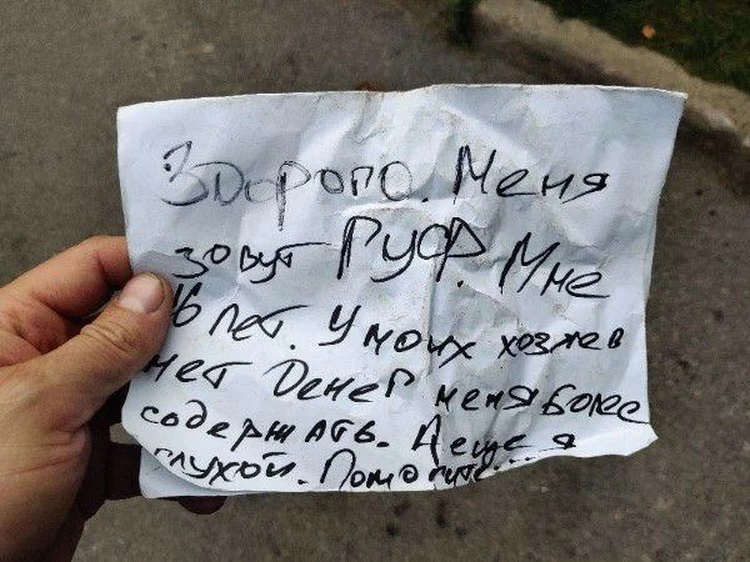 Здорого. Меня
зовут Руф. Мне
16 лет. У моих хозяев
нет денег меня более
содержать. А еще я
глухой. Помогите...